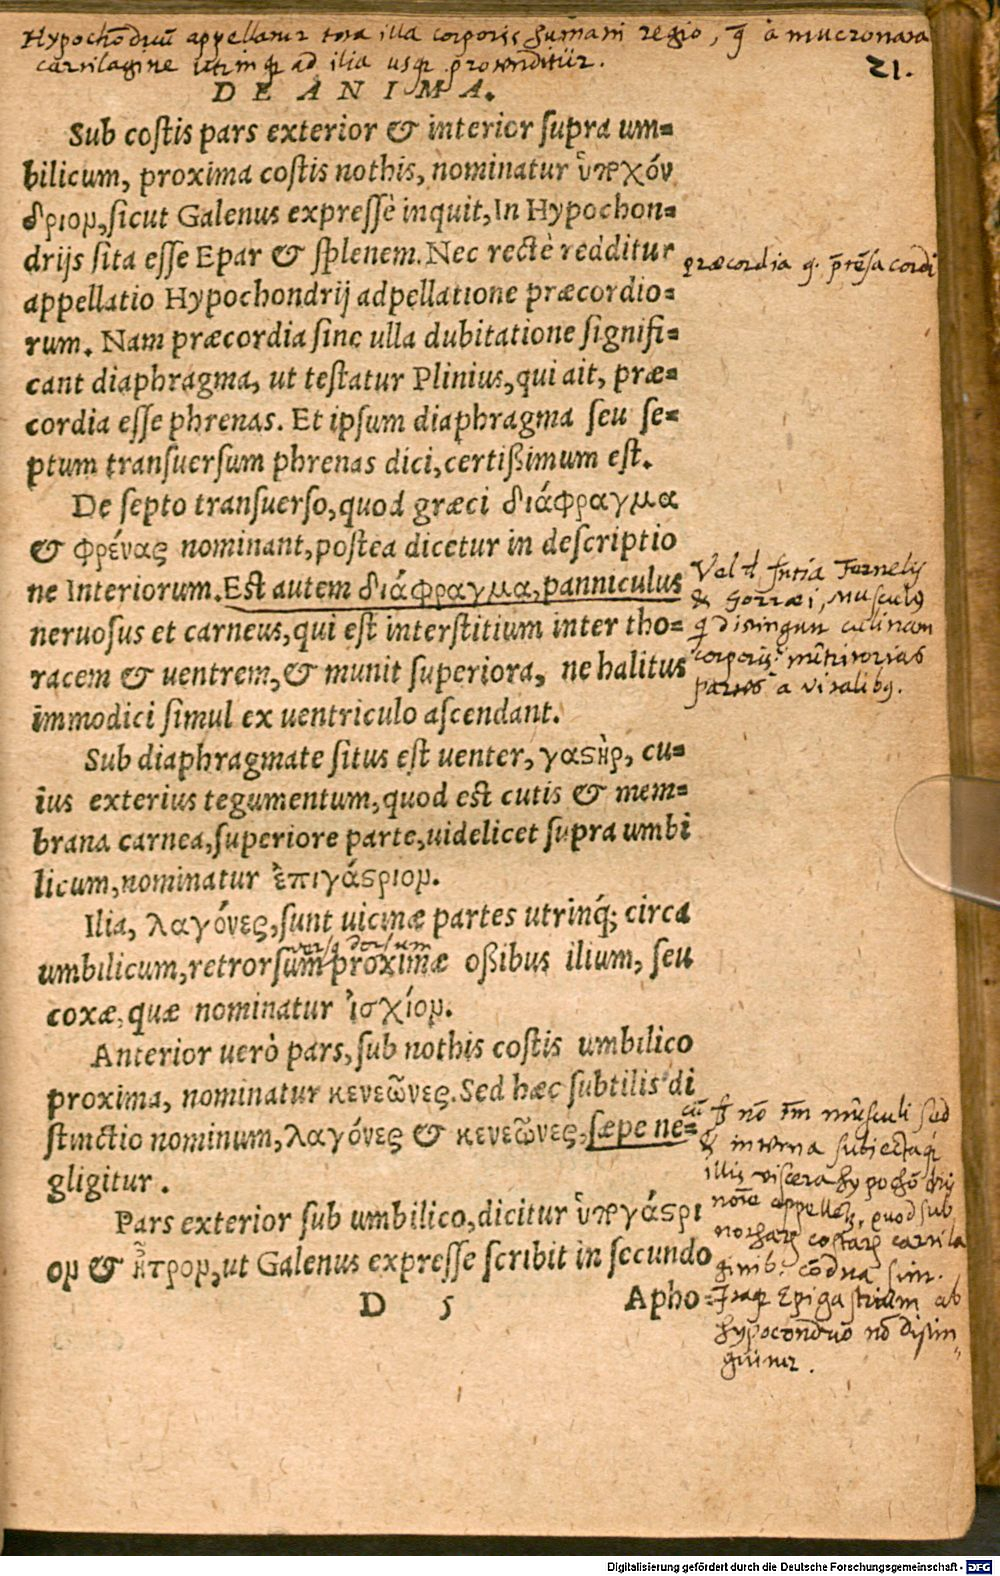 Hypochōdriū appellatur tota illa corporis humani regio, q̄ à mucronata
cartilagine utrimq; ad ilia usq; protenditur.
21.
DE ANIMA.
Sub costis pars exterior & interior supra um-
bilicum, proxima costis nothis, nominatur ὑποχόν
δριον, sicut Galenus expressè inquit, In Hypochon-
drijs sita esse Epar & splenem. Nec rectè redditur
appellatio Hypochondrij adpellatione præcordio-
rum. Nam præcordia sine ulla dubitatione signifi-
cant diaphragma, ut testatur Plinius, qui ait, præ-
cordia esse phrenas. Et ipsum diaphragma seu se-
ptum transuersum phrenas dici, certißimum est.
præcordia q. prētēsa cordi
De septo transuerso, quod græci διάφραγμα
& φρένας nominant, postea dicetur in descriptio
ne Interiorum. Est autem διάφραγμα, panniculus
neruosus et carneus, qui est interstitium inter tho-
racem & uentrem, & munit superiora, ne halitus
immodici simul ex uentriculo ascendant.
Vel ſntīa Fernelij
& Gorræi, musculus
q̄ distinguit culinam
corporis: nutritorias
partes a vitalibꝰ.
Sub diaphragmate situs est uenter, γαϛὴρ, cu-
ius exterius tegumentum, quod est cutis & mem-
brana carnea, superiore parte, uidelicet supra umbi
licum, nominatur ἐπιγάϛριον.
Ilia, λαγόνες, sunt uicinæ partes utrinq; circa
versꝰ dorsum
umbilicum, retrorsum proximæ oßibus ilium, seu
coxæ, quæ nominatur ἰσχίον.
Anterior uerò pars, sub nothis costis umbilico
proxima, nominatur κενεῶνες. Sed hæc subtilis di
stinctio nominum, λαγόνες & κενεῶνες, sæpe ne-
gligitur.
cū ſ nō tm̄ musculi sed
& interna subiectaq;
illis viscera hypochōdrij
noīe appellet, quod sub
notharꝝ costarꝝ cartila
ginibꝰ cōdita sint.
Itaq; Epigastrium ab
hypocondrio nō distin-
guitur.
Pars exterior sub umbilico, dicitur ὑπογάϛρι
ον & ἦτρον, ut Galenus expresse scribit in secundo
D 5 Apho-
Digitalisierung gefördert durch die Deutsche Forschungsgemeinschaft - DFG